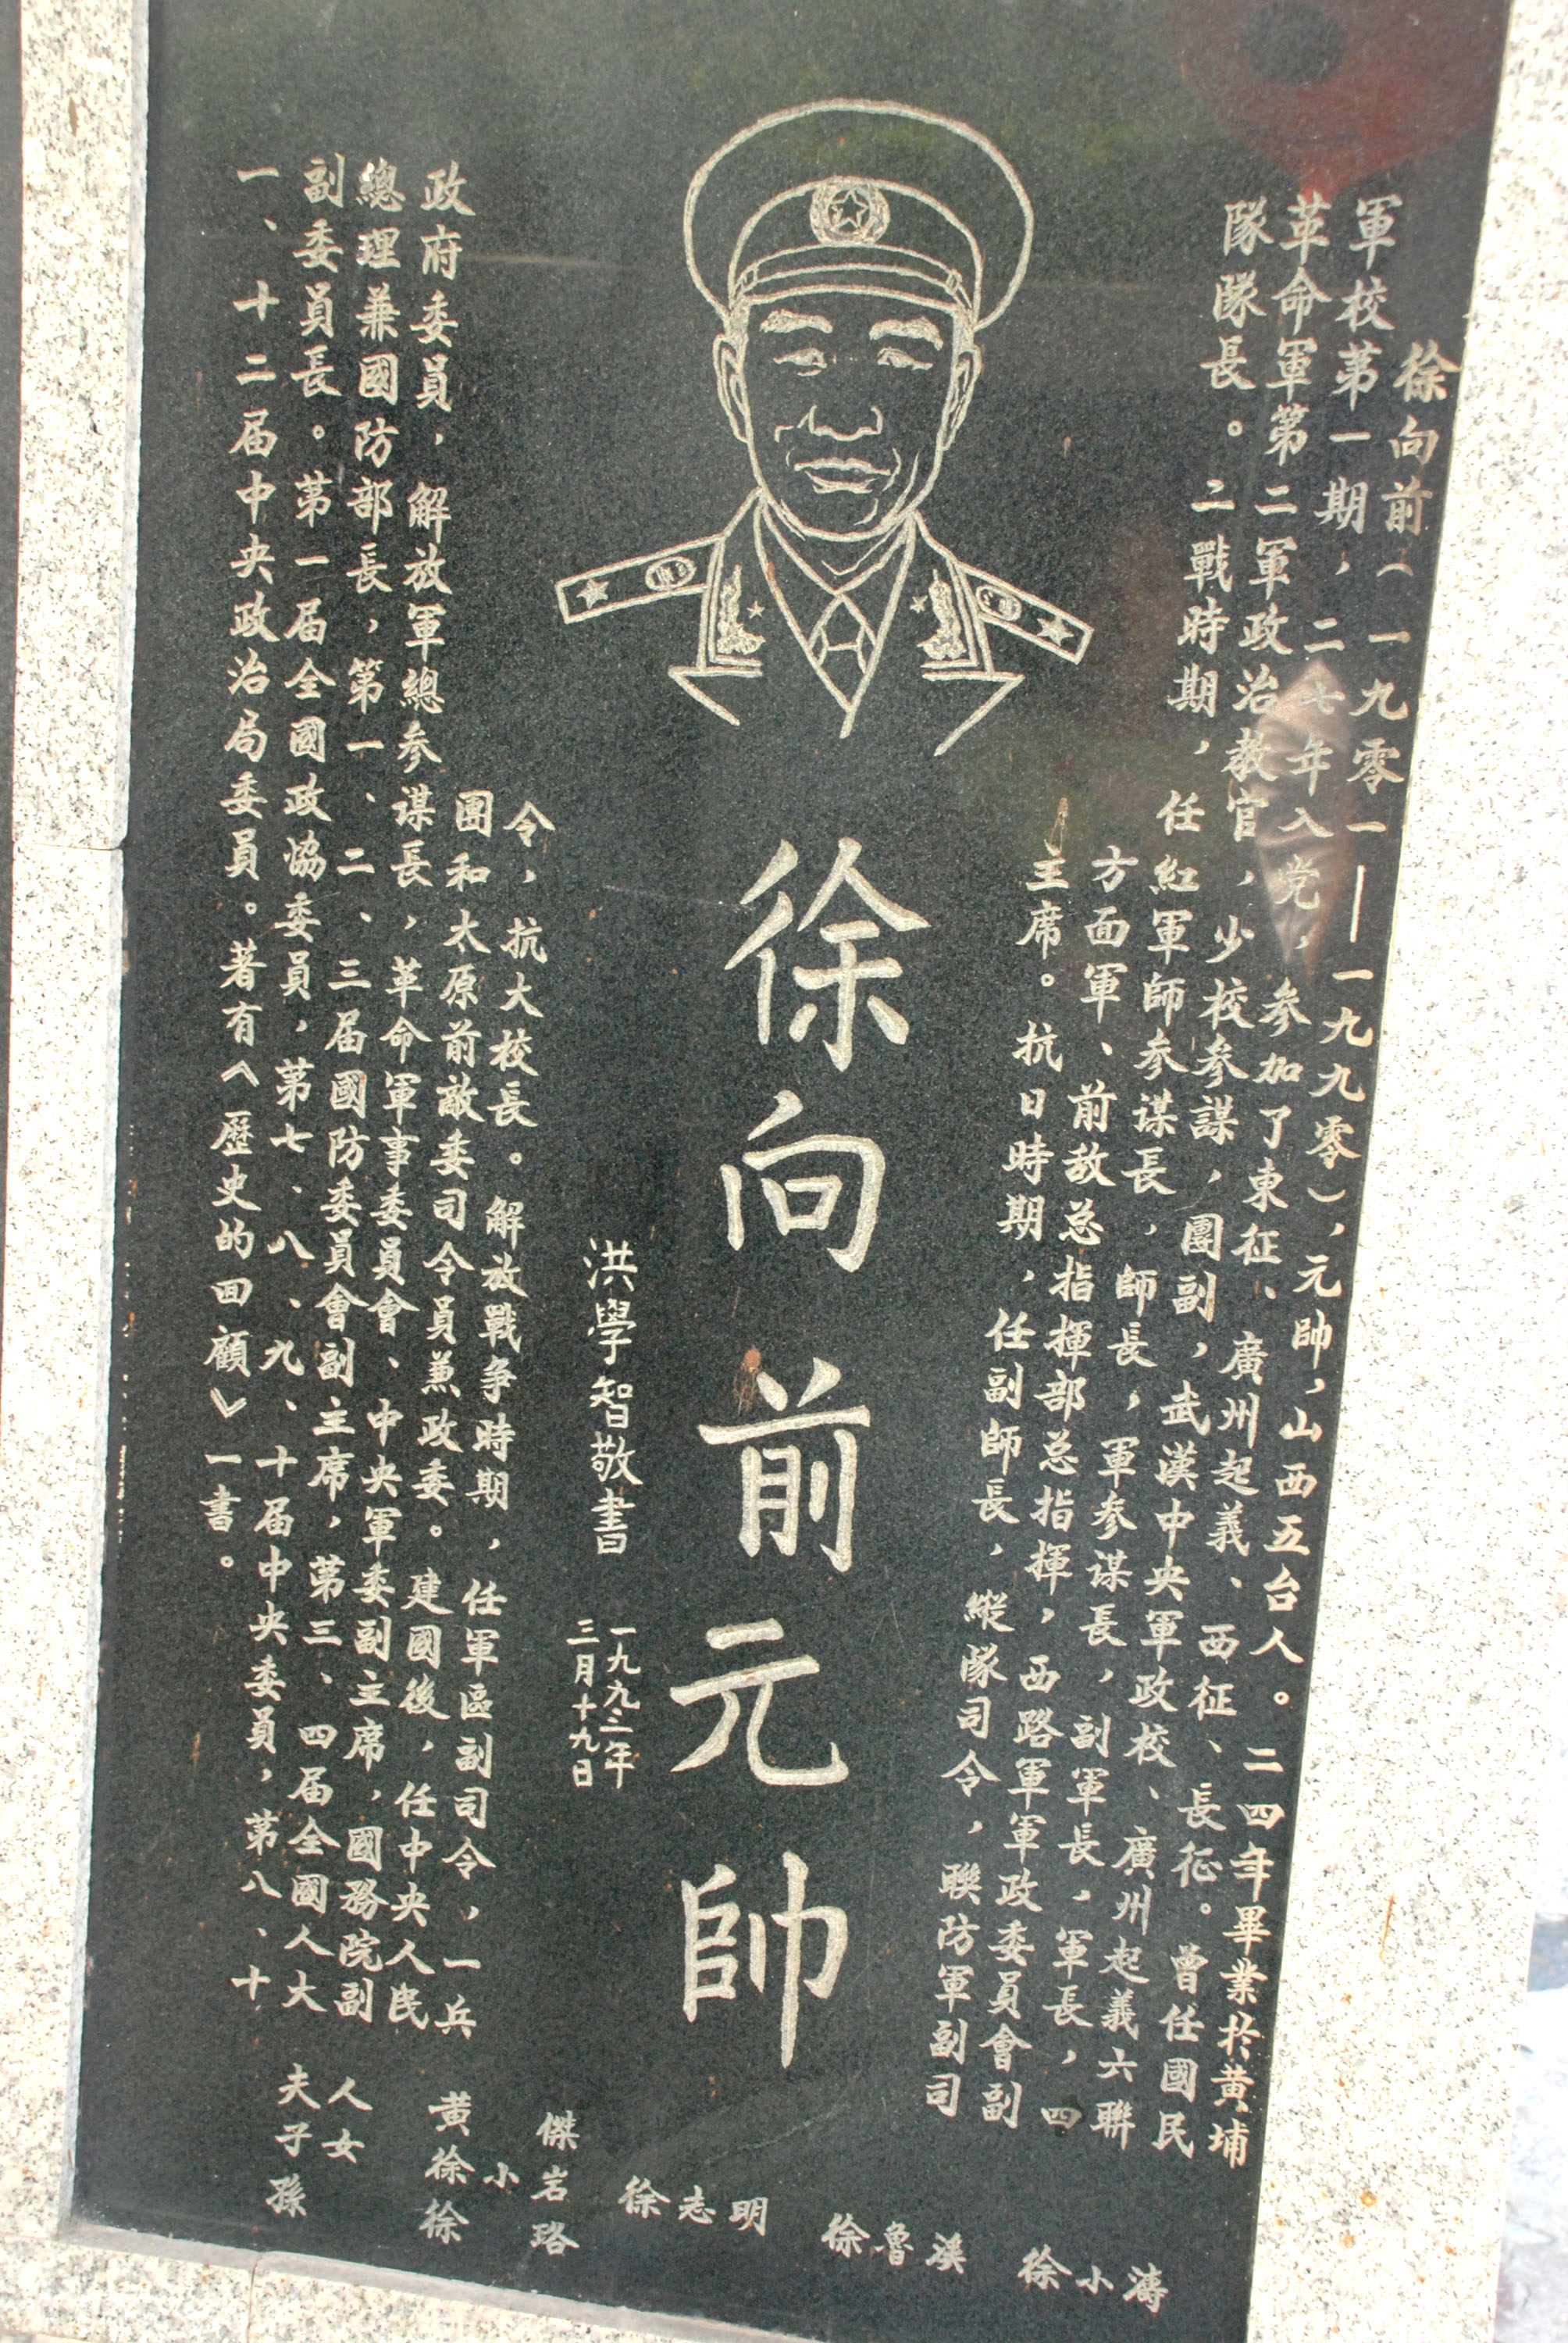 徐向前（一九零一——一九九零），元帥，山西五台人。二四年畢業於黃埔
軍校第一期，二七年入党，參加了東征、廣州起義、西征、長征。曾任國民
革命軍第二軍政治教官，少校参謀，團副，武漢中央軍政校、廣州起義六聯
隊隊長。二戰時期，任紅軍師参謀長，師長，軍参謀長，副軍長，軍長，四
方面軍、前敌总指揮部总指揮，西路軍軍政委員會副
主席。抗日時期，任副師長，縱隊司令，聯防軍副司
徐向前元帥
洪學智敬書
一九九三年
三月十九日
令，抗大校長。解放戰争時期，任軍區副司令，一兵
團和太原前敵委司令員兼政委。建國後，任中央人民
政府委員，解放軍總参謀長，革命軍事委員會、中央軍委副主席，國務院副
總理兼國防部長，第一、二、三届國防委員會副主席，第三、四届全國人大
副委員長。第一届全國政協委員，第七、八、九、十届中央委員，第八、十
一、十二届中央政治局委員。著有《歷史的回顧》一書。
夫人 黄傑
子女 徐小岩
孫 徐珞 徐志明 徐魯溪 徐小濤